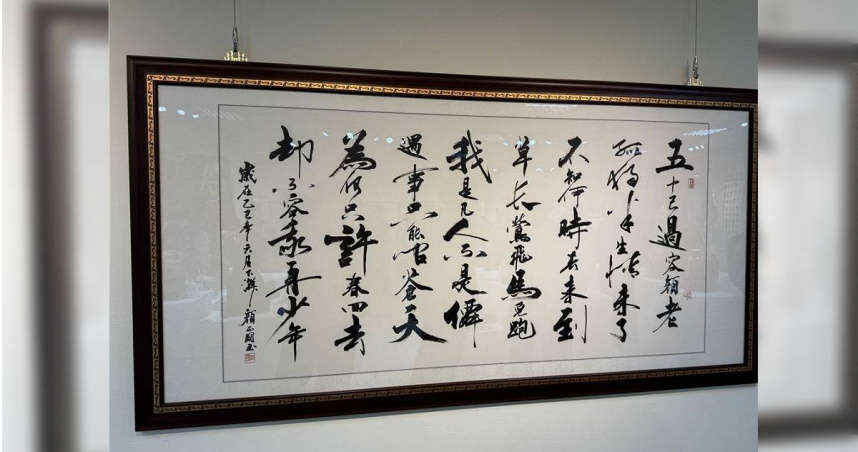 五十已過容顏老
孤獨半生情未了
不知何時春來到
草長鶯飛馬兒跑
我是凡人不是僊
遇事只能問蒼天
為何只許春回去
却不容我再少年
歲在乙巳年六月 顏正國書